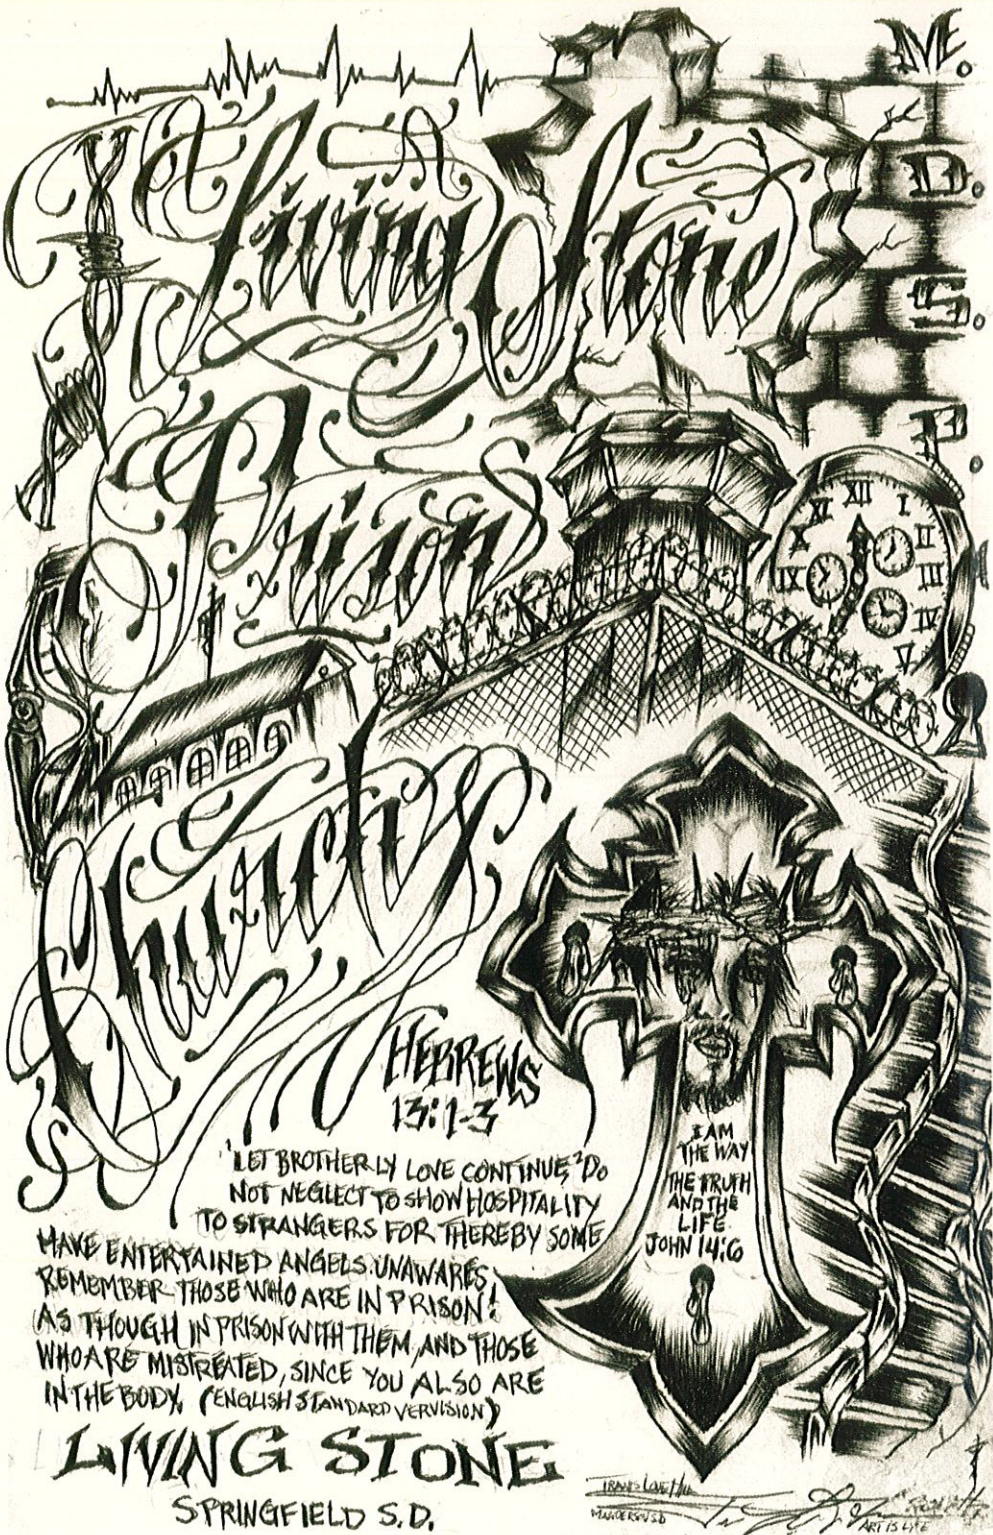 Living Stone
M.
D.
S.
P.
Prison
XII
I
II
III
IV
V
IX
X
XI
Church
HEBREWS
13:1-3
'LET BROTHERLY LOVE CONTINUE, ²DO
NOT NEGLECT TO SHOW HOSPITALITY
TO STRANGERS FOR THEREBY SOME
HAVE ENTERTAINED ANGELS UNAWARES,
REMEMBER THOSE WHO ARE IN PRISON!
AS THOUGH IN PRISON WITH THEM, AND THOSE
WHO ARE MISTREATED, SINCE YOU ALSO ARE
IN THE BODY, (ENGLISH STANDARD VERVISION)
I AM
THE WAY
THE TRUTH
AND THE
LIFE
JOHN 14:6
LIVING STONE
SPRINGFIELD S.D.
ART IS LIFE